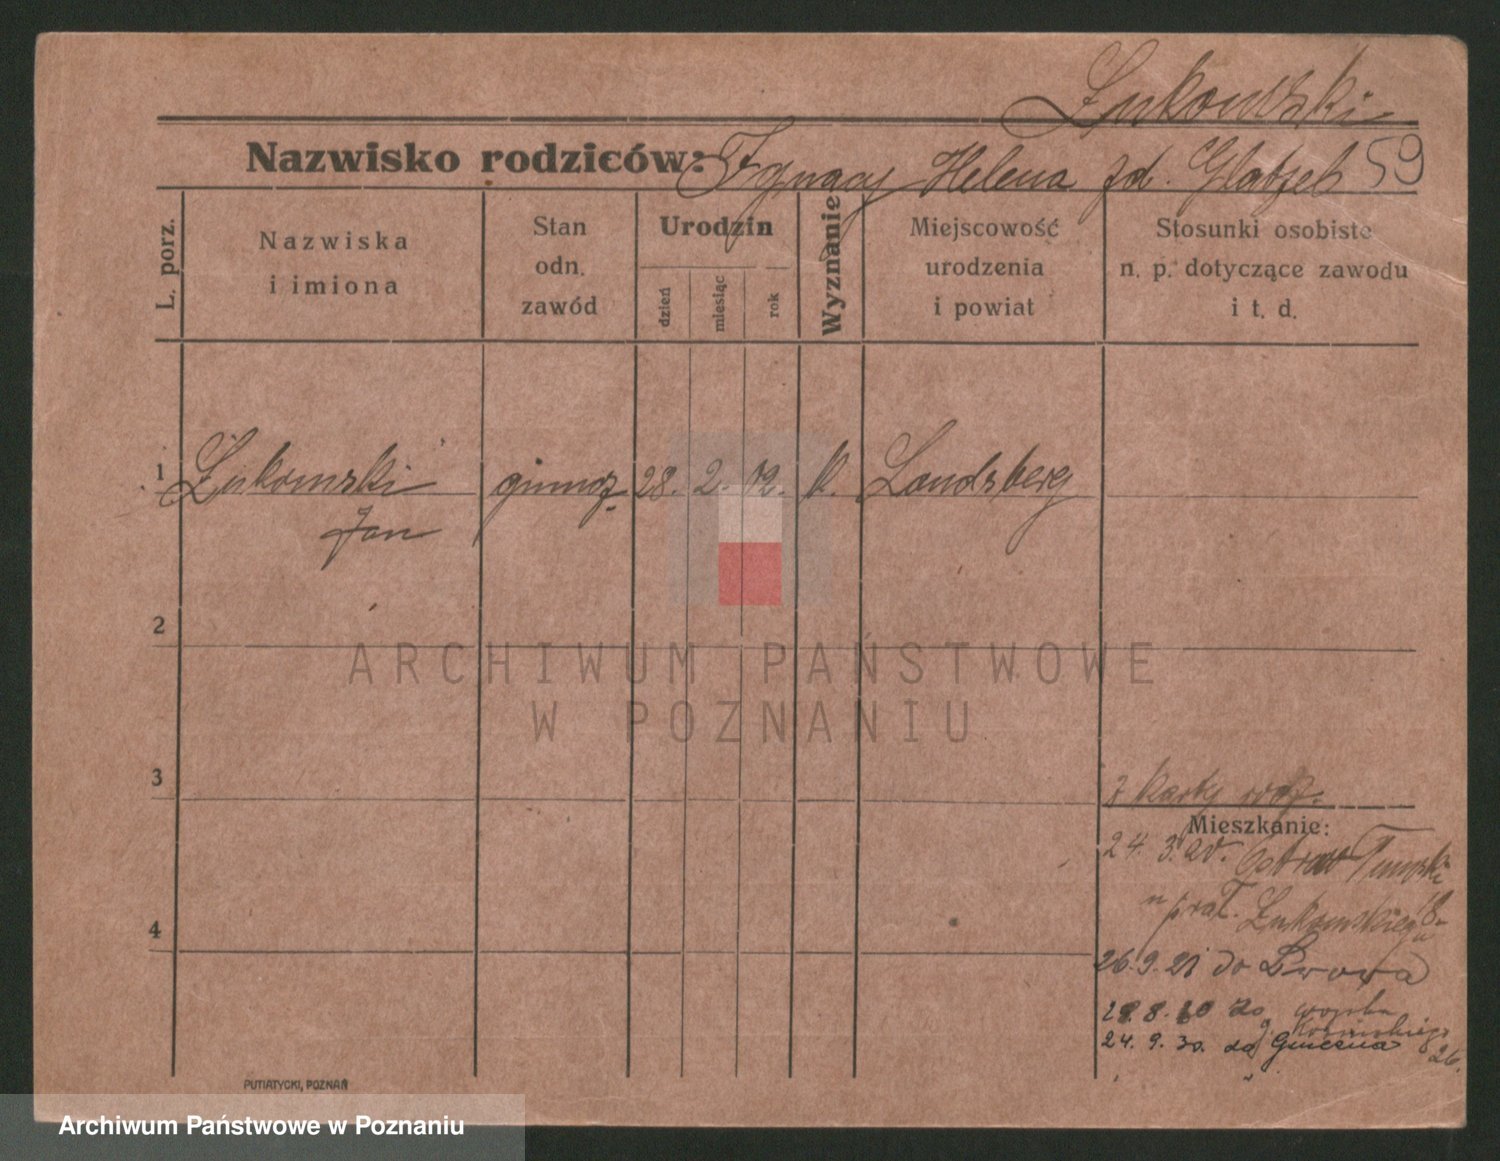 Żukowski
Nazwisko rodziców: Ignacy Helena zd. Glatzel 59
L. porz.
Nazwiska
i imiona
Stan
odn.
zawód
Urodzin
dzień
miesiąc
rok
Wyznanie
Miejscowość
urodzenia
i powiat
Stosunki osobiste
n. p. dotyczące zawodu
i t. d.
1 Żukowski gimnaz. 28. 2. 12. k. Landsberg
Jan
2
3
z karty rodz.
Mieszkanie:
24. 3. 20. Ostrów Tumski
u prał. Żukowskiego
4
26. 9. 21 do Lwowa
18. 8. 20 do wojska
24. 9. 30. do Gniezna
26.
PUTIATYCKI, POZNAŃ
ARCHIWUM PAŃSTWOWE
W POZNANIU
Archiwum Państwowe w Poznaniu